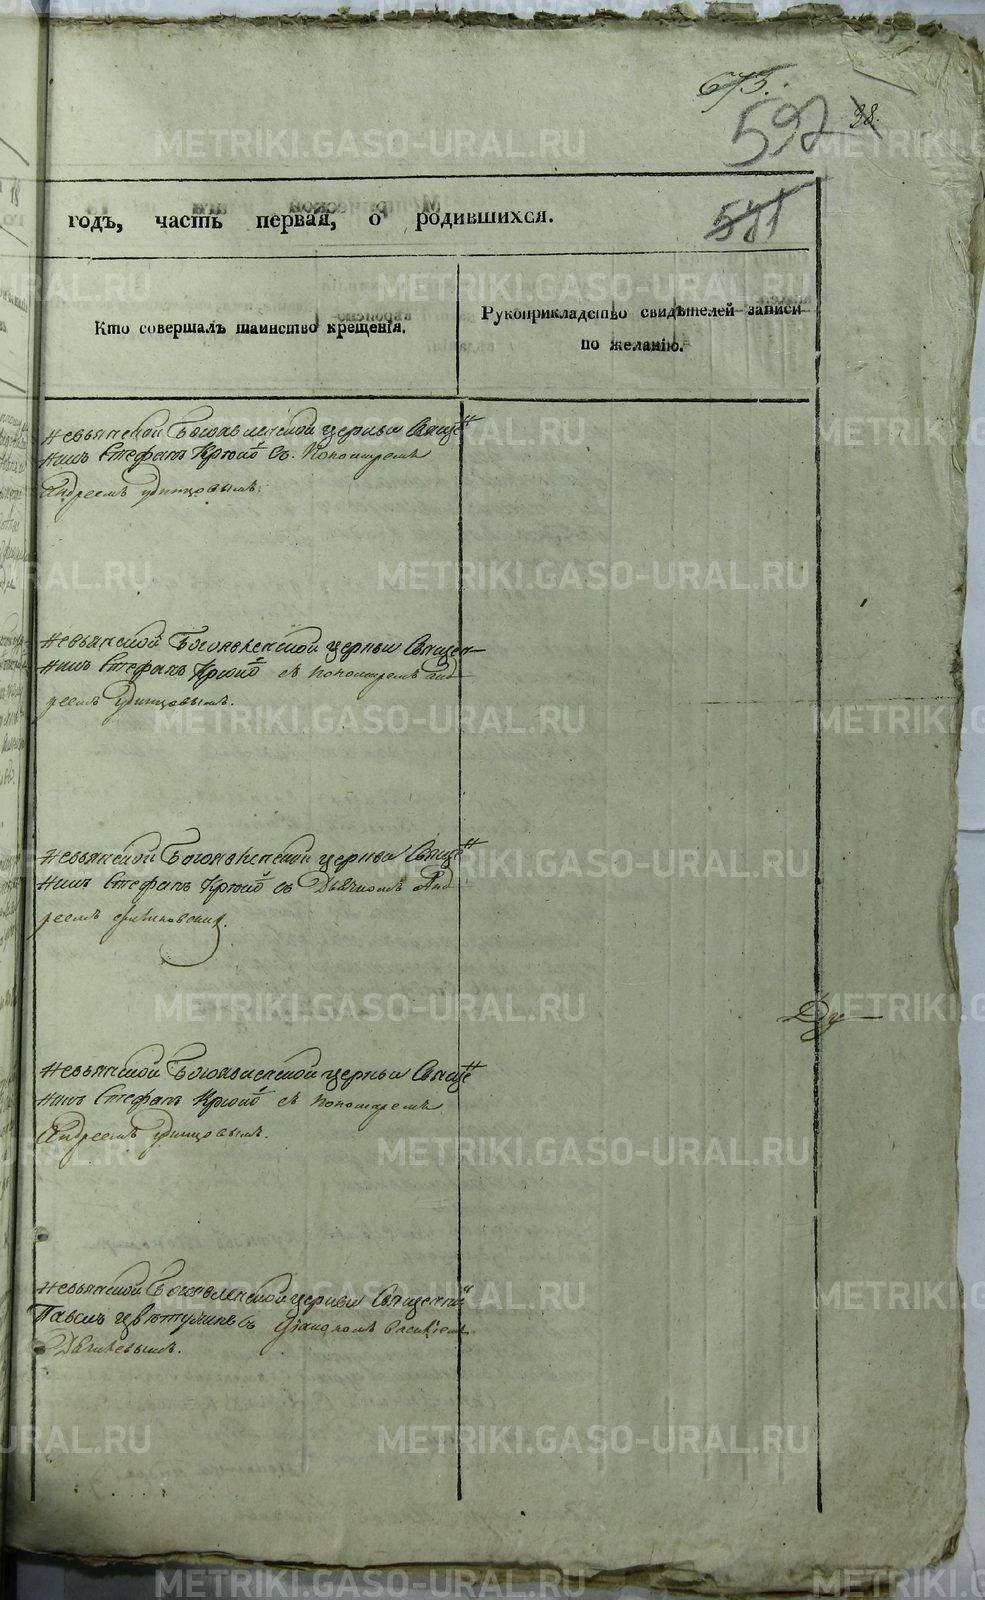 673.
592 98.
годъ, часть первая, о родившихся.
581
Кто совершалъ таинство крещенія.
Рукоприкладство свидѣтелей записи
по желанію.
Невьянской Богоявленской церкви Свяще
нникъ Стефанъ съ Пономаремъ
Андреемъ Удинцовымъ.
Невьянской Богоявленской церкви Священ
никъ Стефанъ съ Пономаремъ Анд
реемъ Удинцовымъ.
Невьянской Богоявленской церкви Свяще
нникъ Стефанъ съ Дьячкомъ Анд
реемъ
Невьянской Богоявленской церкви Свяще
нникъ Стефанъ съ Пономаремъ
Андреемъ Удинцовымъ.
Невьянской Богоявленской церкви Священни
Павелъ съ
METRIKI.GASO-URAL.RU